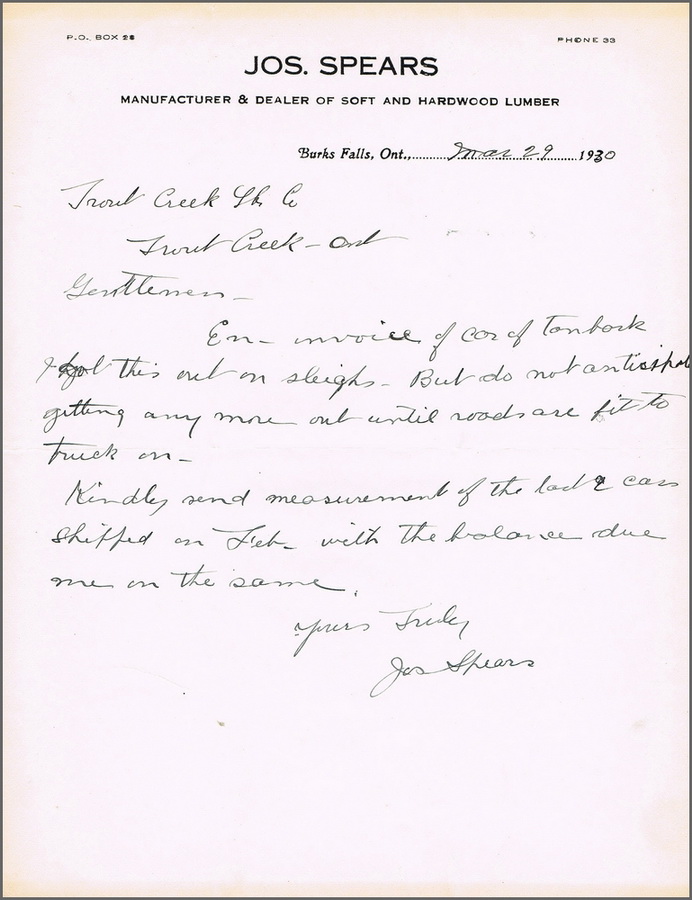 P.O. BOX 28 PHONE 33
JOS. SPEARS
MANUFACTURER & DEALER OF SOFT AND HARDWOOD LUMBER
Burks Falls, Ont., Mar 29 1930
Trout Creek Co
Trout Creek - Ont
Gentlemen -
En - invoice of car of Tanbark
I got this out on sleighs - But do not anticipate
getting any more out until roads are fit to
truck on -
Kindley send measurement of the last 2 cars
shipped on Feb - with the balance due
me on the same.
Yours Truley
Jos Spears